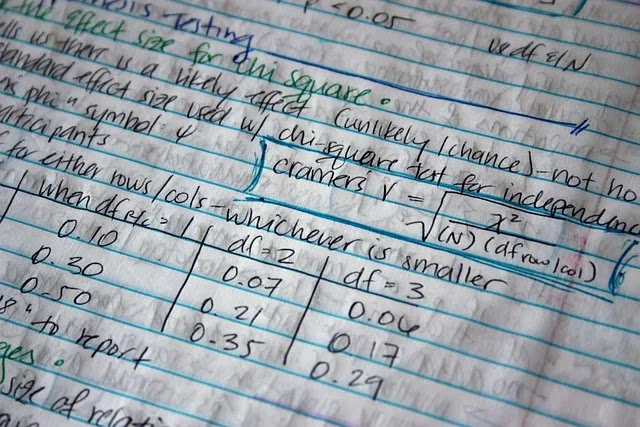 p < 0.05
hesis Testing
use df & N
effect size for chi square.
ells us there is a likely effect (unlikely/chance)-not ho
standard effect size used w/ chi-square test for independenc
phi" symbol: φ
articipants
cramer's V = √ χ² / (N)(df row/col)
for either rows/cols - whichever is smaller
when df r/c = 1 df = 2 df = 3
0.10 0.07 0.06
0.30 0.21 0.17
0.50 0.35 0.29
" to report
ges.
size of relati